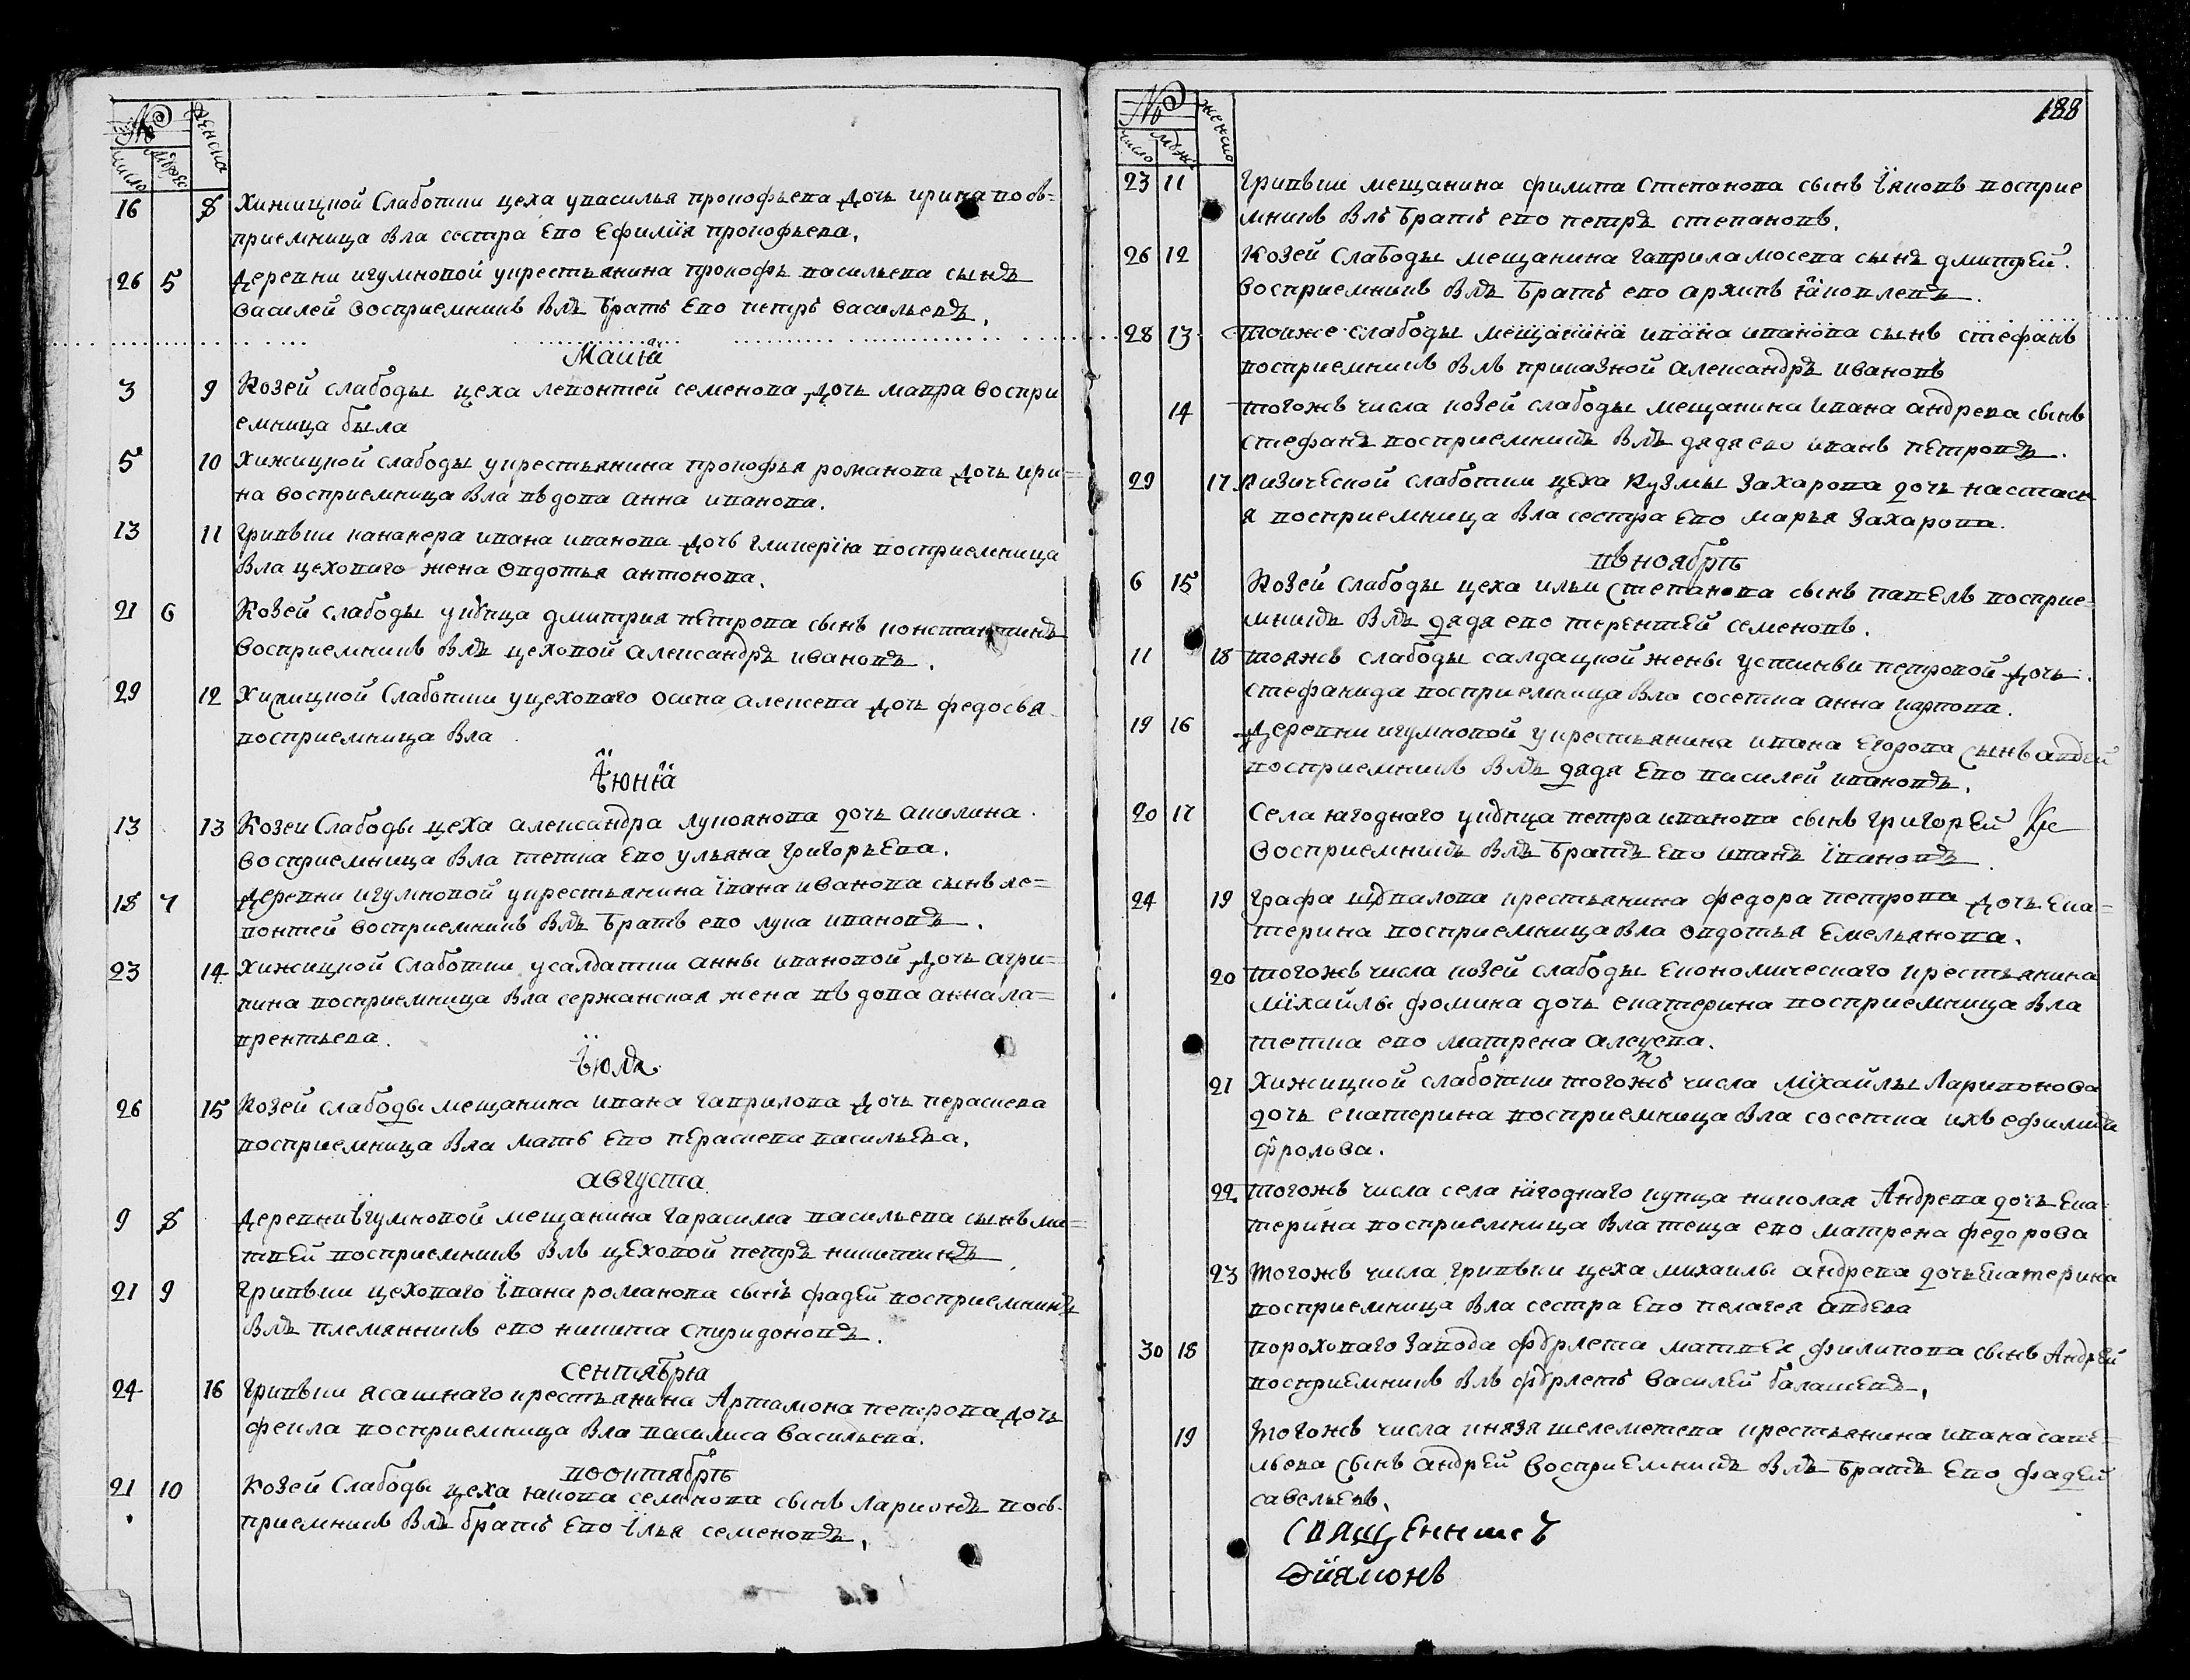 №
число мужес женска
16 8 Хижицкой слаботки цеха увасилья прокофьева дочь ирина вось-
приемница была сестра Ево Ефимия прокофьева,
26 5 деревни игумновой укрестьянина прокофь васильева сынъ
василей восприемникъ былъ братъ Ево петръ васильевъ,
Маиа
3 9 Козей слабоды цеха левонтей семенова дочь мавра воспри
емница была
5 10 Хижицкой слабоды укрестьянина прокофья романова дочь ири=
на восприемница была въдова анна иванова.
13 11 Гривъки кананера ивана иванова дочь гликерїю восприемница
была цеховаго жена овдотья антонова,
21 6 Козей слабоды укупца дмитрия петрова сынъ константинъ
восприемникъ былъ цеховой александръ ивановъ.
29 12 Хижицкой слаботки уцеховаго осипа алексева дочь федосья
восприемница была
Їюнїа
13 13 Козеи слабоды цеха александра лукоянова дочь акилина.
восприемница была тетка Ево ульяна григорьева.
18 7 деревни игумновой укрестьянина їпана иванова сынъ ле=
вонтей восприемникъ былъ братъ ево лука ивановъ.
23 14 Хижицкой слаботки усалдатки анны ивановой дочь агри=
пина восприемница была сержанская жена въдова анна ла=
врентьева.
Їюля
26 15 Козей слабоды мещанина ивана гаврилова дочь нерасиева
восприемница была мать Ево пераскеви васильева,
августа
9 8 деревни їгумновой мещанина гарасима васильева сынъ ма=
твей восприемникъ былъ цеховой петръ никитинъ
21 9 Гривъки цеховаго їпана романова сынъ фадей восприемникъ
былъ племянникъ ево никита спиридоновъ.
сентября
24 16 Гривъки ясашнаго крестьянина Артамона петрова дочь
фекла восприемница была василиса васильева.
вооктябрь
21 10 Козей слабоды цеха якова семенова сынъ ларионъ вось-
приемникъ былъ братъ Ево їлья семеновъ,
188
№
число мужс женско
23 11 Гривъки мещанина филипа степанова сынъ їяковъ восприе
мникъ былъ братъ ево петръ степановъ,
26 12 Козей слабоды мещанина гаврила мосева сынъ дмитрей.
восприемникъ былъ братъ ево архипъ яковлевъ.
28 13 тоиже слабоды мещанина ивана иванова сынъ стефанъ
восприемникъ былъ приказной александръ ивановъ
14 тогожъ числа козей слабоды мещанина ивана андрева сынъ
стефанъ восприемникъ былъ дядя ево иванъ петровъ.
29 17 Кизической слаботки цеха кузмы захарова дочь настась
я восприемница была сестра Ево марья захарова.
въноябрь
6 15 Козей слабоды цеха ильи степанова сынъ павелъ восприе-
мникъ былъ дядя ево терентей семеновъ.
11 18 тояжъ слабоды салдацкой жены устинви петровой дочь
стефанида восприемница была соседка анна карпова.
19 16 деревни игумновой укрестьянина ивана Егорова сынъ авдей
восприемникъ былъ дядя Ево василей ивановъ,
20 17 Села ягоднаго укупца петра иванова сынъ григорей
восприемникъ былъ братъ Ево иванъ їпановъ
24 19 графа шувалова крестьянина федора петрова дочь Ека=
терина восприемница была овдотья емельянова.
20 тогожъ числа козей слабоды економическаго крестьянина
михайлы фомина дочь екатерина восприемница была
тетка ево матрена алексева.
21 Хижицкой слаботки тогожъ числа михайлы ларивонова
дочь екатерина восприемница была соседка ихъ ефимия
фролова.
22. тогожъ числа села ягоднаго купца николая Андрева дочь Ека
терина восприемница была теща ево матрена федорова
23 тогожъ числа гривъки цеха михаилы андрева дочь Екатерина
восприемница была сестра Ево пелагея авдева
30 18 пороховаго завода фурлета матвея филипова сынъ Андрей
восприемникъ былъ фурлетъ василей балашевъ,
19 тогожъ числа князя шелеметева крестьянина ивана саве=
льева сынъ андрей восприемникъ былъ братъ Ево фадей
савельевъ,
священникъ